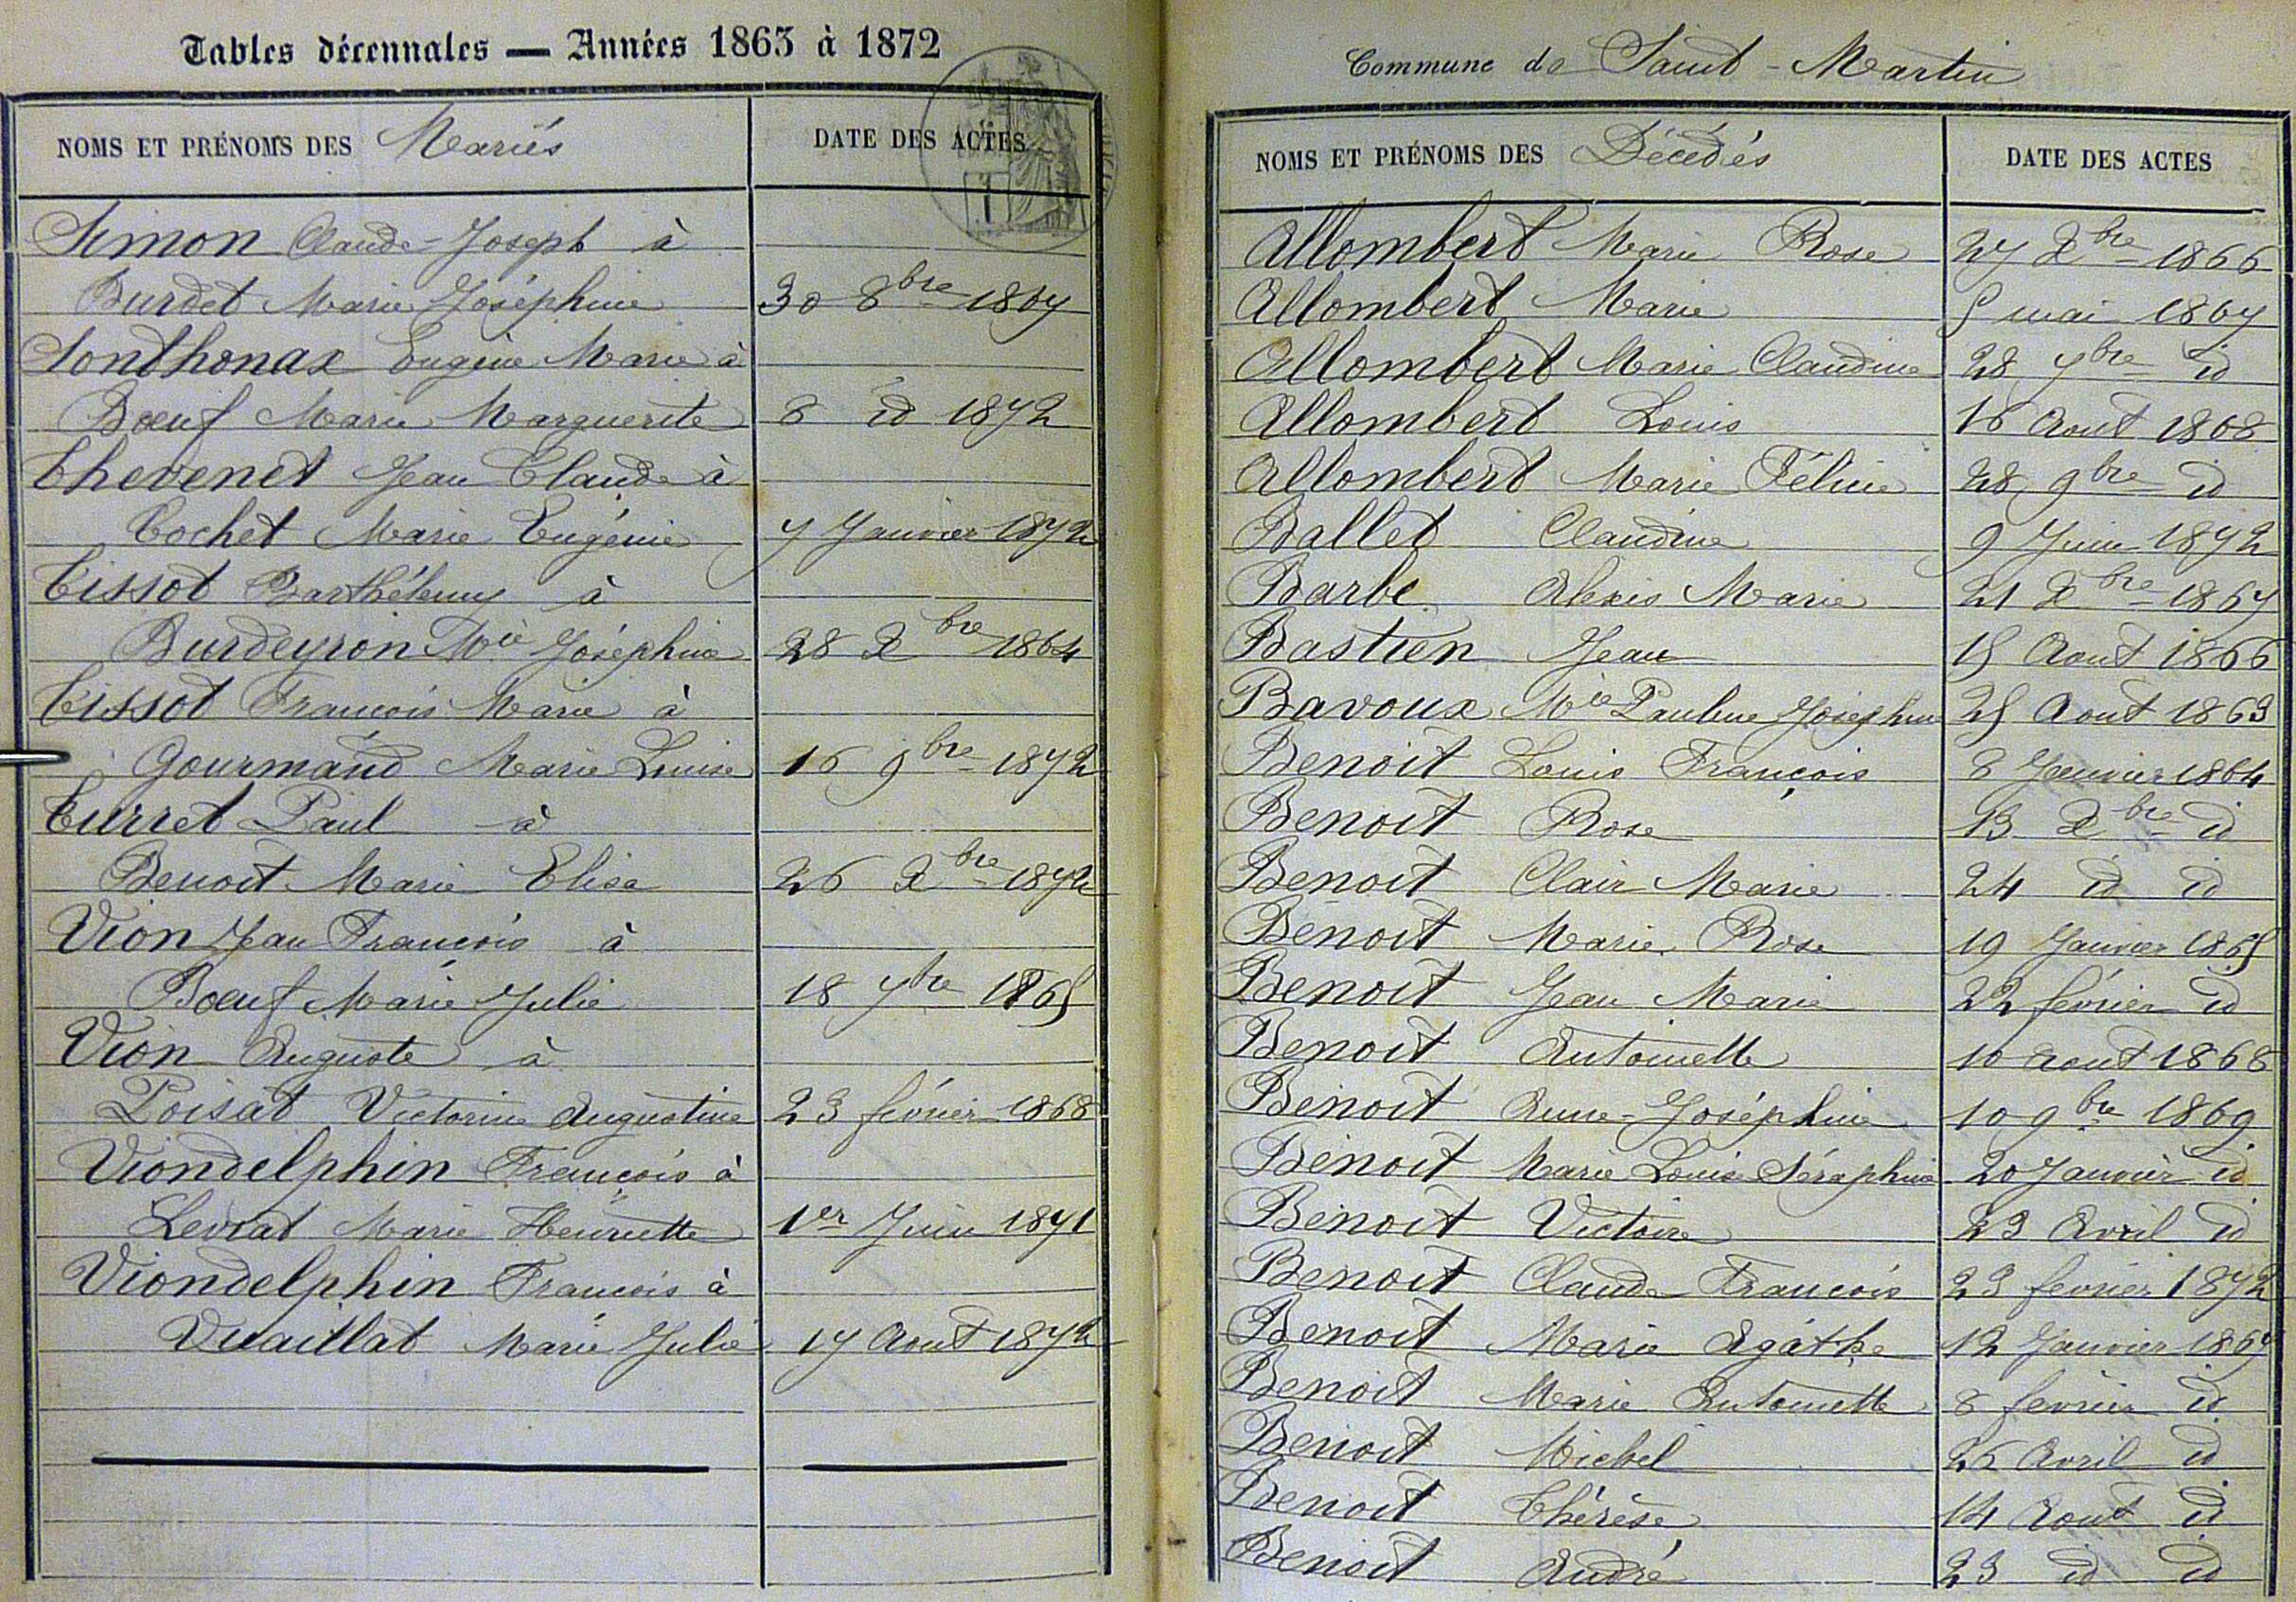 Tables décennales — Années 1863 à 1872
NOMS ET PRÉNOMS DES Mariés DATE DES ACTES
Simon Claude-Joseph à
Burdet Marie Joséphine 30 8bre 1867
Sonthonax Eugène Marie à
Bœuf Marie Marguerite 8 id 1872
Thevenet Jean Claude à
Cochet Marie Eugénie 7 Janvier 1872
Tissot Barthélemy à
Burdeyron Mie Joséphine 28 Xbre 1864
Tissot François Marie à
Gourmand Marie Louise 16 9bre 1872
Turret Paul à
Benoit Marie Elisa 26 Xbre 1872
Vion Jean François à
Bœuf Marie Julie 18 7bre 1865
Vion Auguste à
Poisat Victorine Augustine 23 février 1868
Viondelphin François à
Levrat Marie Henriette 1er Juin 1871
Viondelphin François à
Vuaillat Marie Julie 17 Aout 1872
Commune de Saint-Martin
NOMS ET PRÉNOMS DES Décédés DATE DES ACTES
Allombert Marie Rose 27 Xbre 1866
Allombert Marie 5 mai 1867
Allombert Marie Claudine 28 7bre id
Allombert Louis 16 Aout 1868
Allombert Marie Félicie 28 9bre id
Ballet Claudine 9 Juin 1872
Barbe Alexis Marie 21 Xbre 1867
Bastien Jean 15 Aout 1866
Bavoux Mie Pauline Josephine 25 Aout 1863
Benoit Louis François 8 Janvier 1864
Benoit Rose 13 Xbre id
Benoit Clair Marie 24 id id
Benoit Marie Rose 19 Janvier 1865
Benoit Jean Marie 22 février id
Benoit Antoinette 10 aout 1868
Benoit Anne-Joséphine 10 9bre 1869
Benoit Marie Louise Séraphine 20 Janvier id
Benoit Victoire 23 Avril id
Benoit Claude François 23 fevrier 1872
Benoit Marie Agathe 12 Janvier 1867
Benoit Marie Antoinette 8 fevrier id
Benoit Michel 26 Avril id
Benoit Thérèse 14 Aout id
Benoit André 23 id id